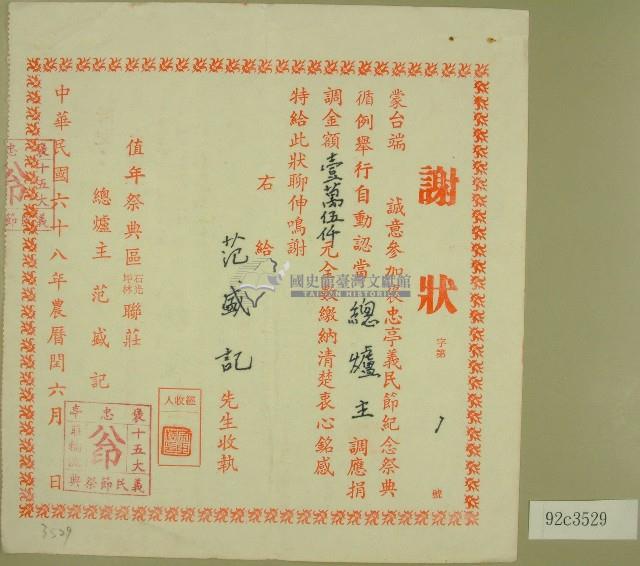 謝狀
字第 1 號
蒙台端 誠意參加褒忠亭義民節紀念祭典
循例舉行自動認當總爐主調應捐
調金額壹萬伍仟元全數繳納清楚衷心銘感
特給此狀聊伸鳴謝
右給
范盛記先生收執
值年祭典區石光坪林聯莊
總爐主 范盛記
中華民國六十八年農曆閏六月 日
經收人
褒忠亭
十五大
義民節祭典
國史館臺灣文獻館
TAIWAN HISTORICA
92c3529
3529